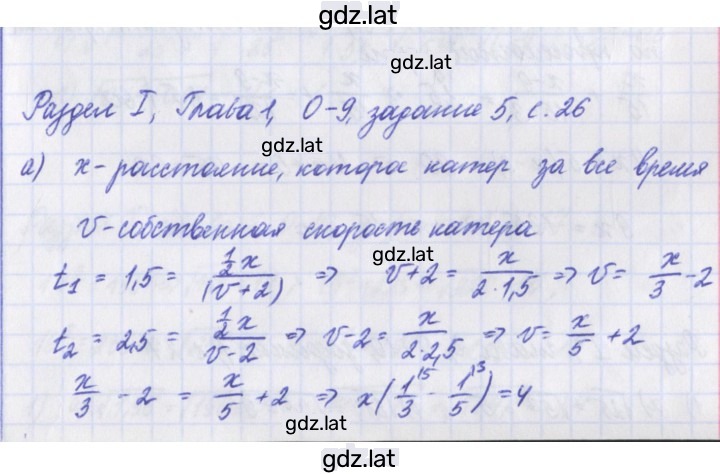 gdz.lat
gdz.lat
Раздел I, Глава 1, О-9, задание 5, с. 26
gdz.lat
а) x - расстояние, которое катер за все время
v - собственная скорость катера
gdz.lat
t₁ = 1,5 = (½x)/(v+2) => v+2 = x/(2·1,5) => v = x/3 - 2
t₂ = 2,5 = (½x)/(v-2) => v-2 = x/(2·2,5) => v = x/5 + 2
x/3 - 2 = x/5 + 2 => x(1/3^15 - 1/5^13) = 4
gdz.lat
gdz.lat